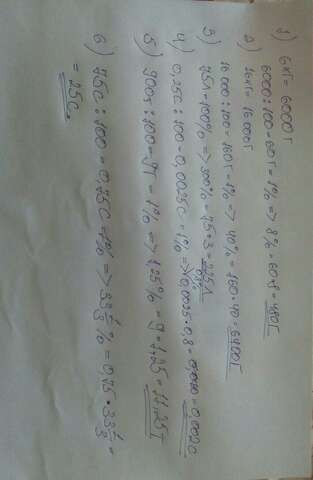 1) 6кг = 6000г
6000:100=60г=1% => 8%=60·8=480г
2) 16кг=16000г
16000:100=160г=1% => 40%=160·40=6400г
3) 75л=100% => 300%=75·3=225л
4) 0,25с:100=0,0025с=1% => 0,8% 0,0025·0,8=0,0020=0,0020
5) 900г:100=9г=1% => 1,25%=9·1,25=11,25г
6) 75с:100=0,75с=1% => 33 1/3%=0,75·33 1/3=
=25с.